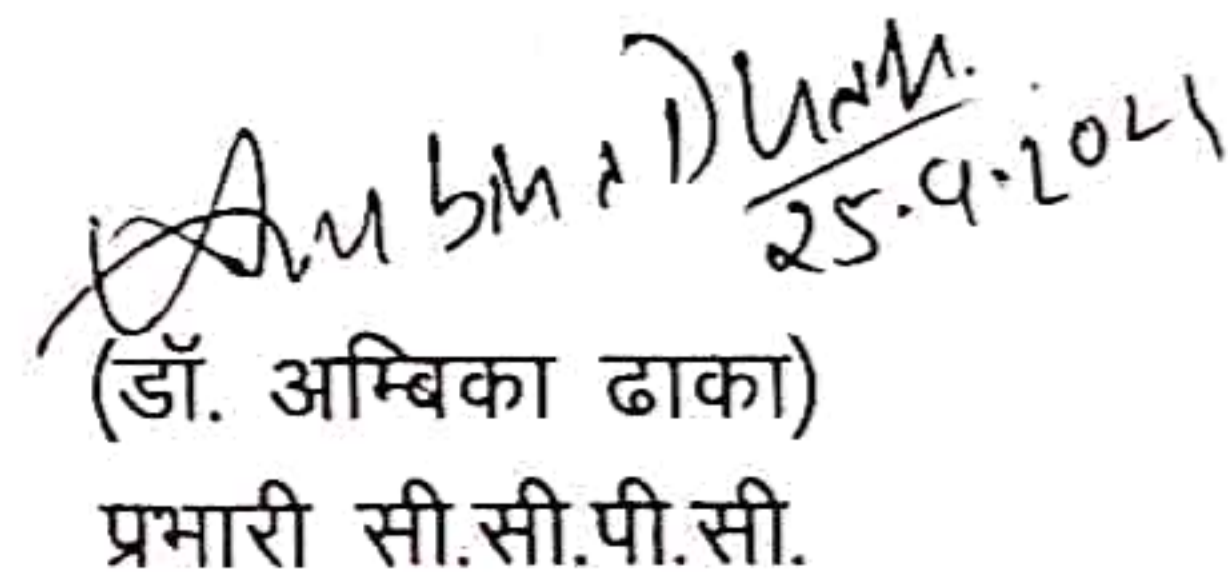 Ambika Dhaka
25.9.2021
(डॉ. अम्बिका ढाका)
प्रभारी सी.सी.पी.सी.